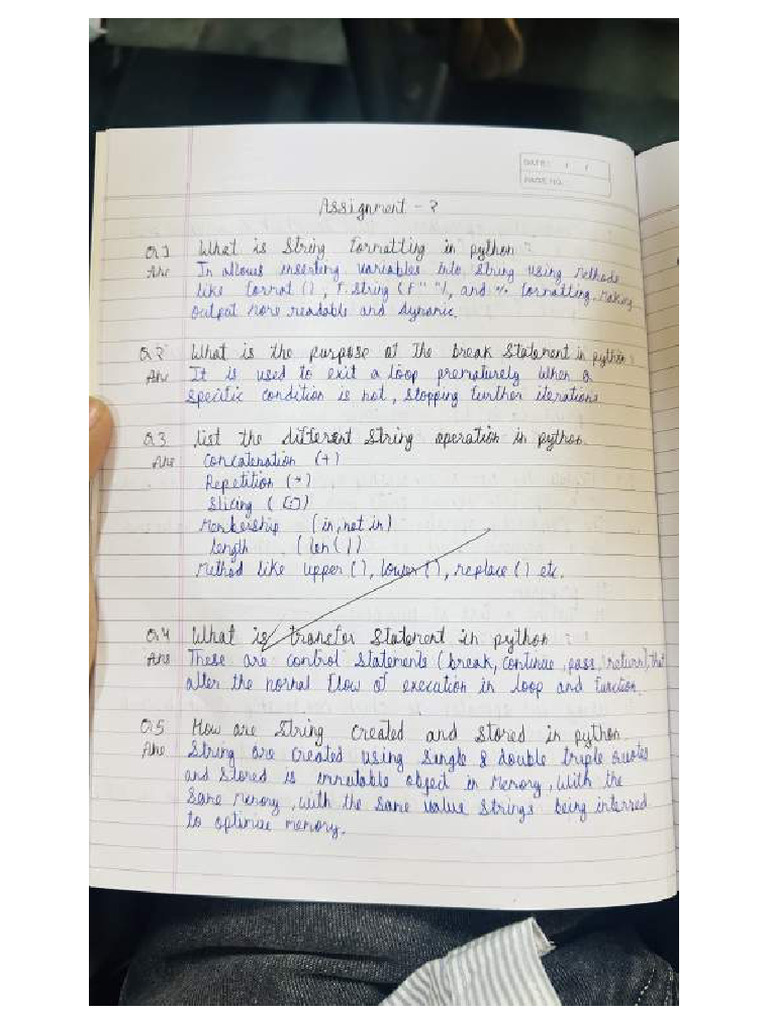 DATE: / /
PAGE NO.
Assignment - 2
Q.1 What is String formatting in python?
Ans In allows inserting variables into string using methods
like format (), F. string (f" "), and % formatting, Making
output more readable and dynamic.
Q.2 What is the purpose of the break Statement in python?
Ans It is used to exit a loop prematurely when a
specific condition is not, stopping further iterations
Q.3 List the different String operation in python.
Ans Concatenation (+)
Repetition (*)
Slicing ( [:])
Membership (in, not in)
length (len())
Method like upper (), lower (), replace () etc.
Q.4 What is transfer Statement in python?
Ans These are control Statements (break, continue, pass, return) that
alter the normal flow of execution in loop and function.
Q.5 How are String created and stored in python
Ans String are created using single & double triple quotes
and stored is immutable object in memory, with the
same memory, with the same value strings being interred
to optimise memory.